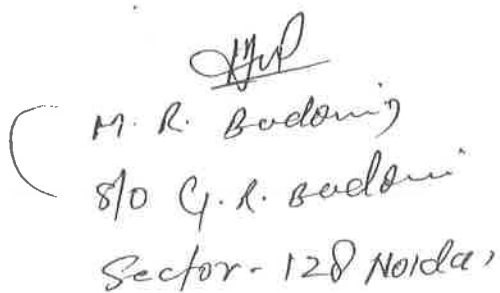 M. R. Badoni,
S/O G. R. Badoni
Sector - 128 Noida,